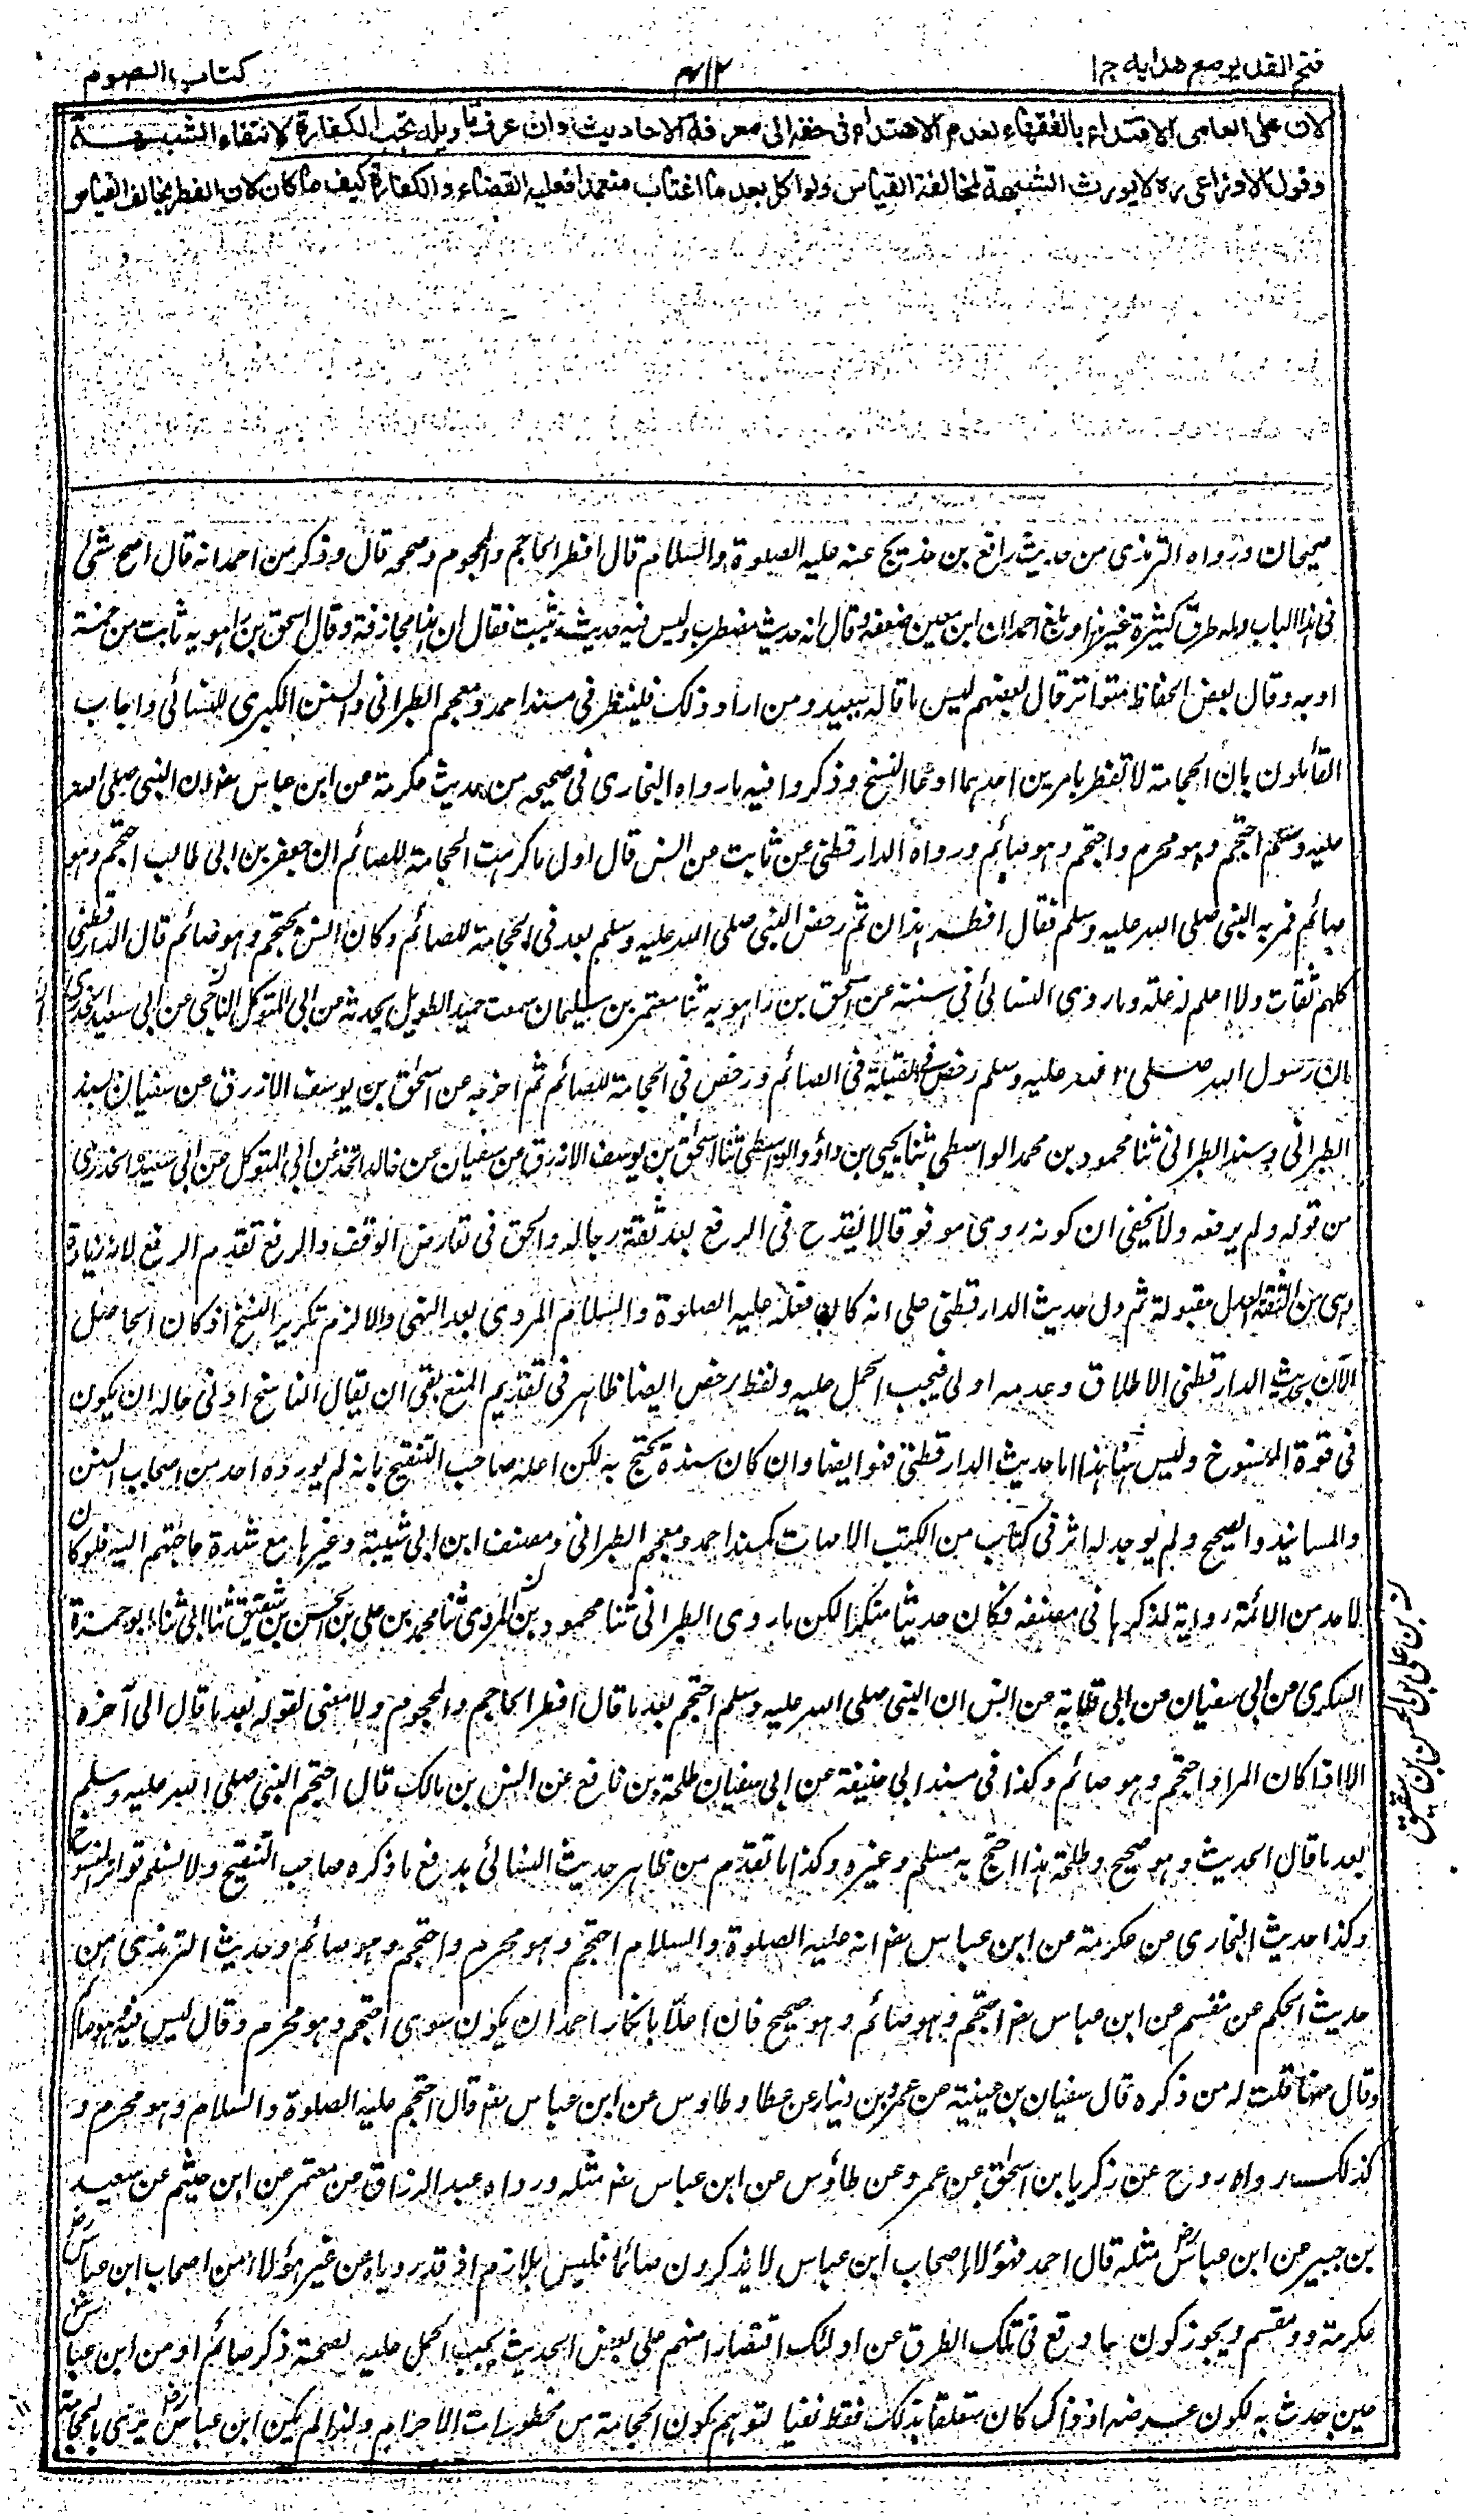 فتح القدير مع هدايه ج ا
۴۱۲
كتاب الصوم
لان على العامى الاقتداء بالفقهاء لعدم الاهتداء فى حقه الى معرفة الاحاديث وان عرف تاويله تجب الكفارة لانتفاء الشبهة
وقول الاوزاعى ره لا يورث الشبهة لمخالفة القياس ولو اكل بعد ما اغتاب متعمدا فعليه القضاء والكفارة كيف ما كان لان الفطر يخالف القياس
صحيحان ورواه الترمذى من حديث رافع بن خديج عنه عليه الصلوة والسلام قال افطر الحاجم والمحجوم وصححه قال وذكر من احمد انه قال اصح شئ
فى هذا الباب وله طرق كثيرة غيرها وبلغ احمد ان ابن معين ضعفه وقال انه حديث مضطرب وليس فيه حديث يثبت فقال ان هذا مجازفة وقال اسحق بن راهويه ثابت من خمسة
اوجه وقال بعض الحفاظ متواتر قال بعضهم ليس ما قاله ببعيد ومن اراد ذلك فلينظر فى مسند احمد ومعجم الطبرانى والسنن الكبرى للنسائى واجاب
القائلون بان الحجامة لا تفطر بامرين احدهما ادعاء النسخ وذكروا فيه ما رواه البخارى فى صحيحه من حديث عكرمة عن ابن عباس رضـ ان النبى صلى الله
عليه وسلم احتجم وهو محرم واحتجم وهو صائم ورواه الدارقطنى عن ثابت عن انس قال اول ما كرهت الحجامة للصائم ان جعفر بن ابى طالب احتجم وهو
صائم فمر به النبى صلى الله عليه وسلم فقال افطر هذان ثم رخص النبى صلى الله عليه وسلم بعد فى الحجامة للصائم وكان انس يحتجم وهو صائم قال الدارقطنى
كلهم ثقات ولا اعلم له علة وما روى النسائى فى سننه عن اسحق بن راهويه ثنا معتمر بن سليمان سمعت حميد الطويل يحدثه عن ابى المتوكل الناجى عن ابى سعيد الخدرى
ان رسول الله صلى الله عليه وسلم رخص فى القبلة فى الصائم ورخص فى الحجامة للصائم ثم اخرجه عن اسحق بن يوسف الازرق عن سفيان بسند
الطبرانى وسند الطبرانى ثنا محمود بن محمد الواسطى ثنا يحيى بن داؤد الواسطى ثنا اسحق بن يوسف الازرق عن سفيان عن خالد الحذاء عن ابى المتوكل عن ابى سعيد الخدرى
من قوله ولم يرفعه ولا يخفى ان كونه روى موقوفا لا يقدح فى الرفع بعد ثقة رجاله والحق فى تعارض الوقف والرفع تقدم الرفع لانه زيادة
وهى من الثقة العدل مقبولة ثم دل حديث الدارقطنى على انه كان فعله عليه الصلوة والسلام المروى بعد النهى والا لزم تكرير النسخ اذ كان الحاصل
الآن بحديث الدارقطنى الاطلاق وعدمه اولى فيجب الحمل عليه ولفظ رخص ايضا ظاهر فى تقديم المنع بقى ان يقال الناسخ ادنى حاله ان يكون
فى قوة المنسوخ وليس هنا هذا اما حديث الدارقطنى فهو ايضا وان كان سنده يحتج به لكن اعله صاحب التنقيح بانه لم يورده احد من اصحاب السنن
والمسانيد والصحيح ولم يوجد له اثر فى كتاب من الكتب الامهات كمسند احمد ومعجم الطبرانى ومصنف ابن ابى شيبة وغيرها مع شدة حاجتهم اليه فلو كان
لاحد من الائمة رواية لذكرها فى مصنفه فكان حديثا منكرا لكن ما روى الطبرانى ثنا محمود بن المروزى ثنا محمد بن على بن الحسن بن شقيق ثنا ابى ثنا ابو حمزة
السكرى عن ابى سفيان عن ابى قلابة عن انس ان النبى صلى الله عليه وسلم احتجم بعد ما قال افطر الحاجم والمحجوم ولا معنى لقوله بعد ما قال الى آخره
الا اذا كان المراد احتجم وهو صائم وكذا فى مسند ابى حنيفة عن ابى سفيان طلحة بن نافع عن انس بن مالك قال احتجم النبى صلى الله عليه وسلم
بعد ما قال الحديث وهو صحيح وطلحة هذا احتج به مسلم وغيره وكذا ما تقدم من ظاهر حديث النسائى يدفع ما ذكره صاحب التنقيح ولا نسلم تواتر المنسوخ
وكذا حديث البخارى من عكرمة عن ابن عباس رضـ انه عليه الصلوة والسلام احتجم وهو محرم واحتجم وهو صائم وحديث الترمذى من
حديث الحكم عن مقسم عن ابن عباس رضـ احتجم وهو صائم وهو صحيح فان اعلّا بانكار احمد ان يكون سوى احتجم وهو محرم وقال ليس فيه هو صائم
وقال مهنا قلت له من ذكره قال سفيان بن عيينة عن عمرو بن دينار عن عطا وطاوس عن ابن عباس رضـ قال احتجم عليه الصلوة والسلام وهو محرم و
كذلك رواه روح عن زكريا بن اسحق عن عمرو عن طاؤس عن ابن عباس رضـ مثله ورواه عبد الرزاق عن معتمر عن ابن خيثم عن سعيد
بن جبير عن ابن عباس رضـ مثله قال احمد فهؤلاء اصحاب ابن عباس لا يذكرون صائما فليس بلازم اذ قد روياه عن غير هؤلاء من اصحاب ابن عباس رضـ
عكرمة ومقسم ويجوز كون ما وقع فى تلك الطرق عن اولئك اقتصارا منهم على بعض الحديث يجب الحمل عليه لصحة ذكر صائم او من ابن عباس رضـ
حين حدث به لكون غرضه اذ ذاك كان متعلقا بذلك فقط نفيا لتوهم كون الحجامة من محظورات الاحرام ولذا لم يكن ابن عباس رضـ يرى بالحجامة
بن على بن الحسن بن شقيق